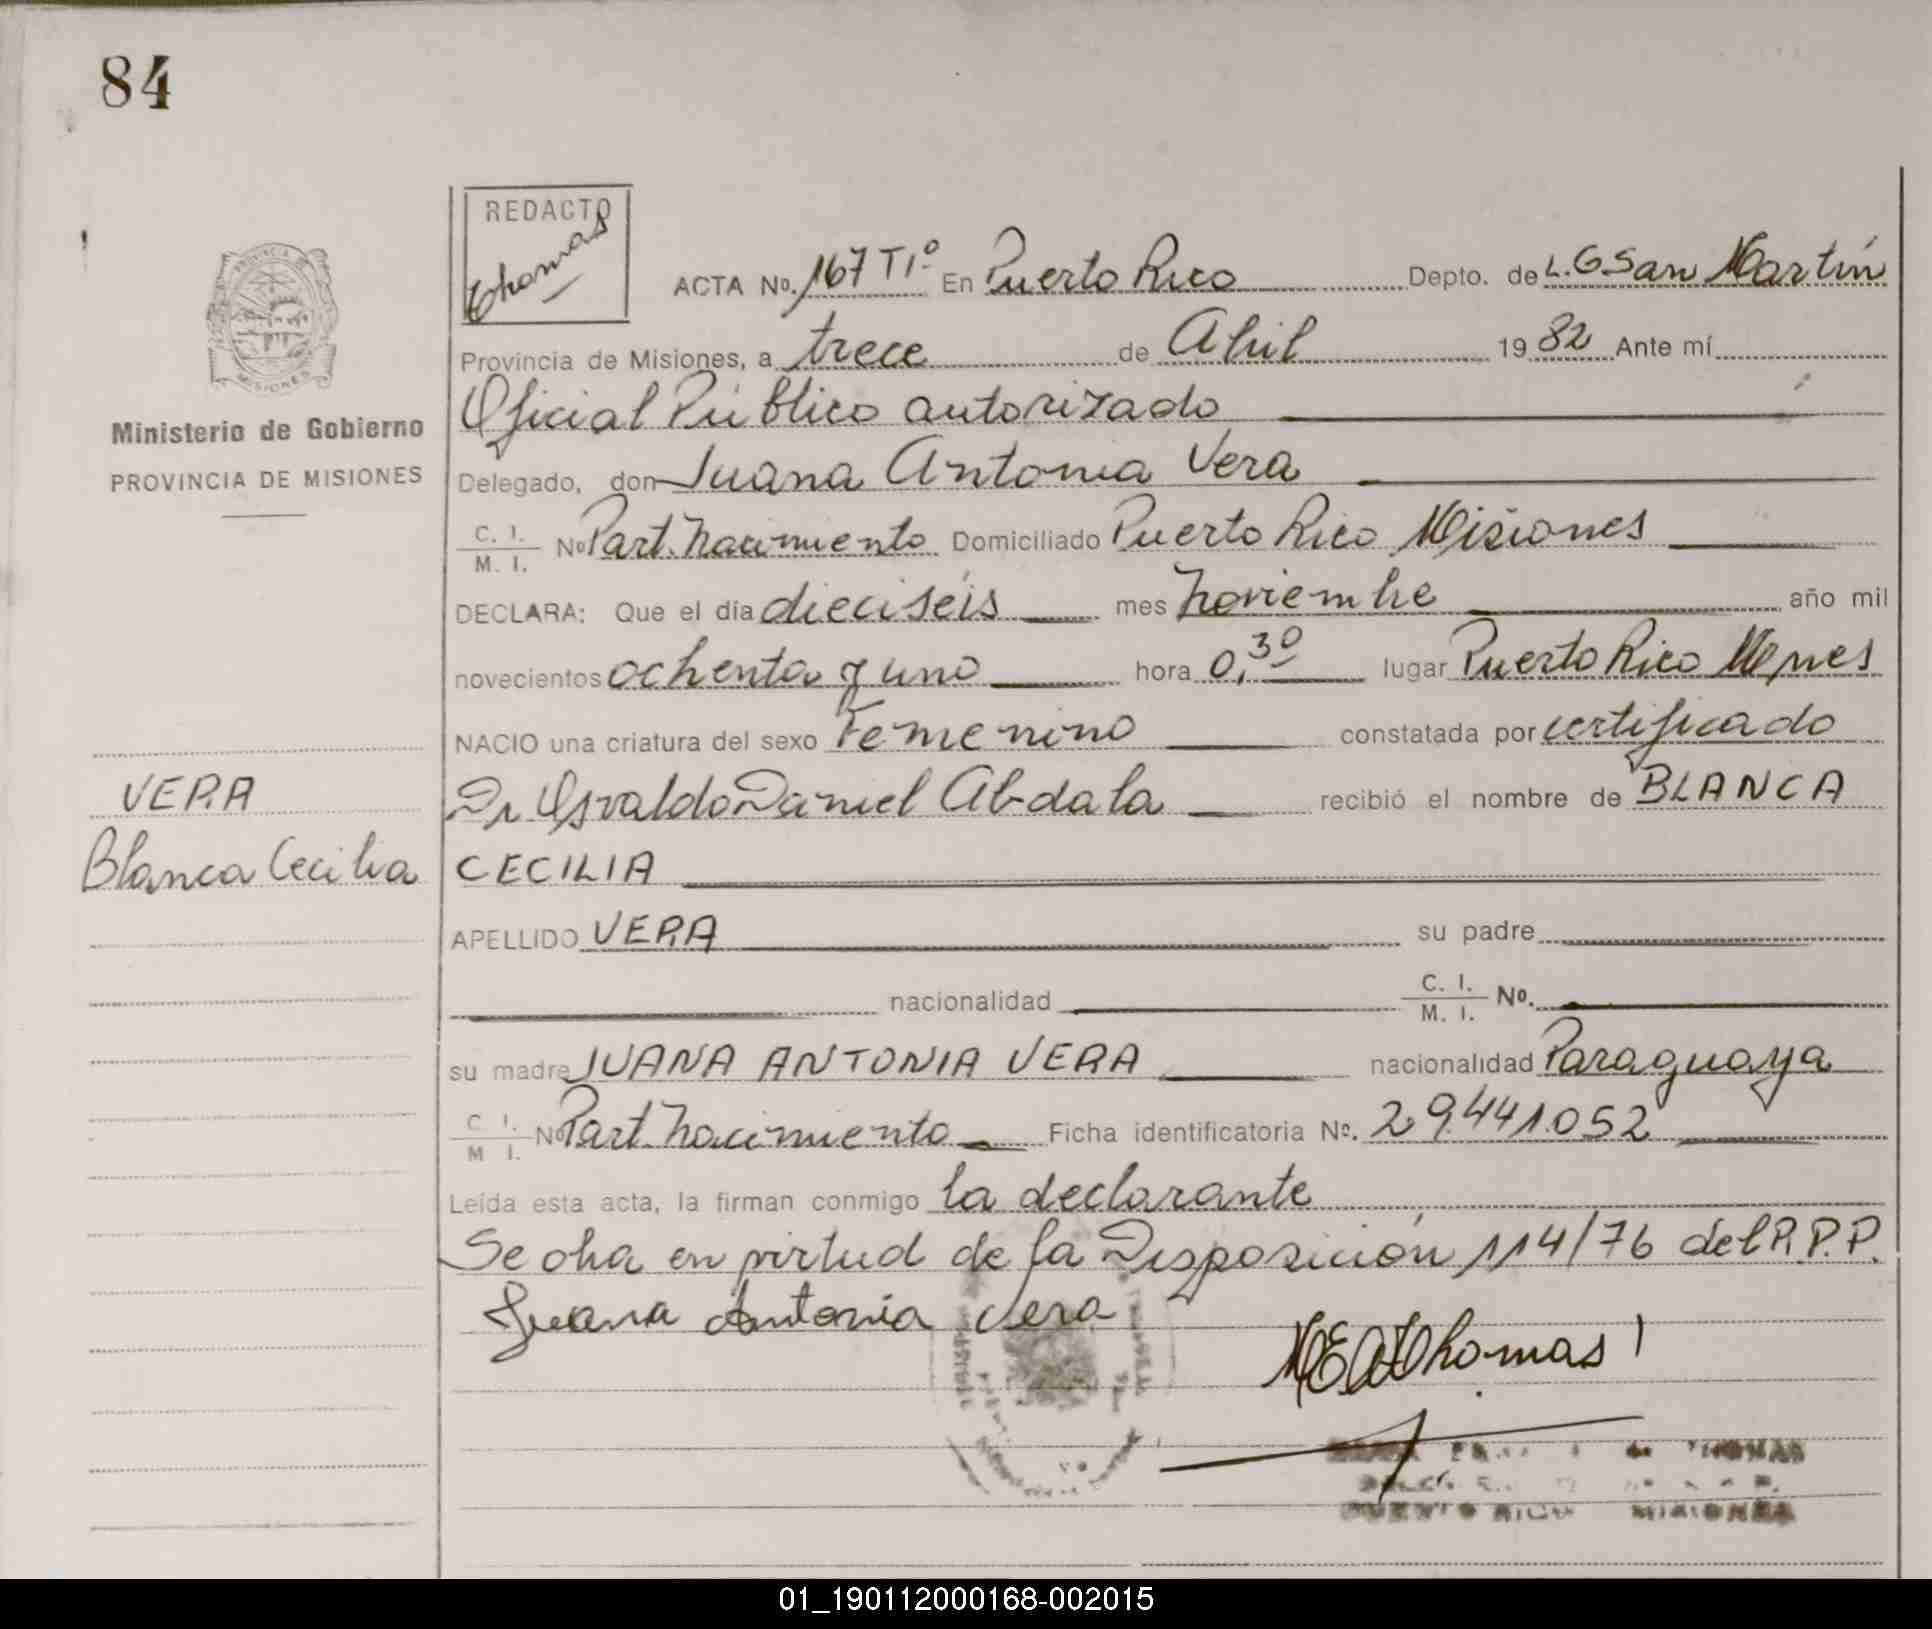 84
REDACTO
Thomas
ACTA No. 167 T1º En Puerto Rico Depto. de L. G San Martín
Provincia de Misiones, a trece de Abril 1982 Ante mí
Oficial Público autorizado
Delegado, don Juana Antonia Vera
C. I. / M. I. No Part. Nacimiento Domiciliado Puerto Rico Misiones
DECLARA: Que el día dieciséis mes Noviembre año mil
novecientos ochenta y uno hora 0,30 lugar Puerto Rico Mnes
NACIO una criatura del sexo Femenino constatada por certificado
Dr Osvaldo Daniel Abdala recibió el nombre de BLANCA
CECILIA
APELLIDO VERA su padre
nacionalidad C. I. / M. I. No.
su madre JUANA ANTONIA VERA nacionalidad Paraguaya
C. I. / M I. No Part. Nacimiento Ficha identificatoria Nº. 29.441.052
Leída esta acta, la firman conmigo la declarante
Se obra en virtud de la Disposición 114/76 del R.P.P.
Juana Antonia Vera
Thomas
de THOMAS
PUERTO RICO MISIONES
PROVINCIA DE
MISIONES
Ministerio de Gobierno
PROVINCIA DE MISIONES
VERA
Blanca Cecilia
01_190112000168-002015